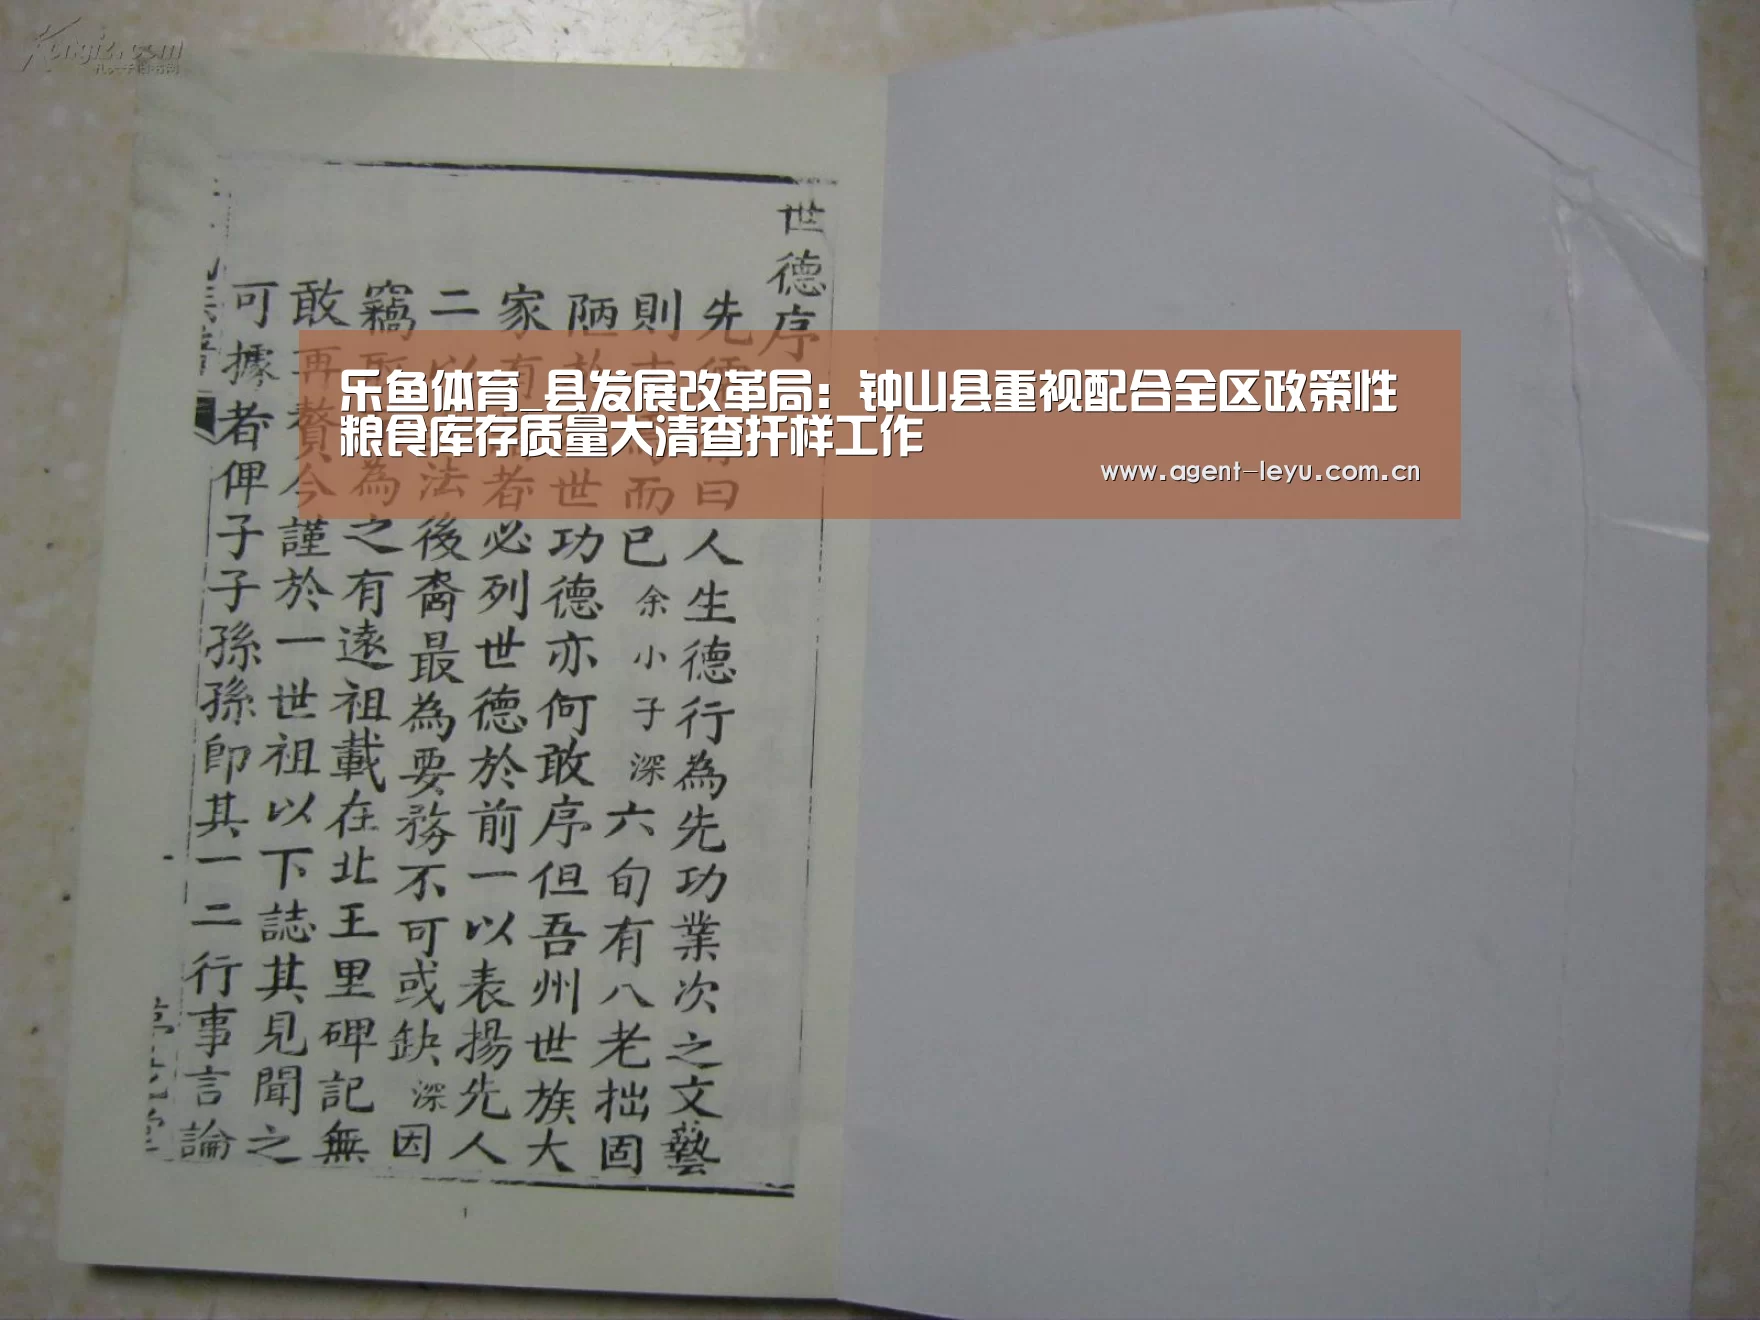 乐鱼体育_县发展改革局：钟山县重视配合全区政策性
粮食库存质量大清查扦样工作
www.agent-leyu.com.cn
世德序
先曰人生德行為先功業次之文藝
則而已余小子深六旬有八老拙固
陋於世功德亦何敢序但吾州世族大
家有者必列世德於前一以表揚先人
二以法後裔最為要務不可或缺深因
竊為之有遠祖載在北王里碑記無
敢再贅今謹於一世祖以下誌其見聞之
可據者俾子子孫孫即其一二行事言論
1